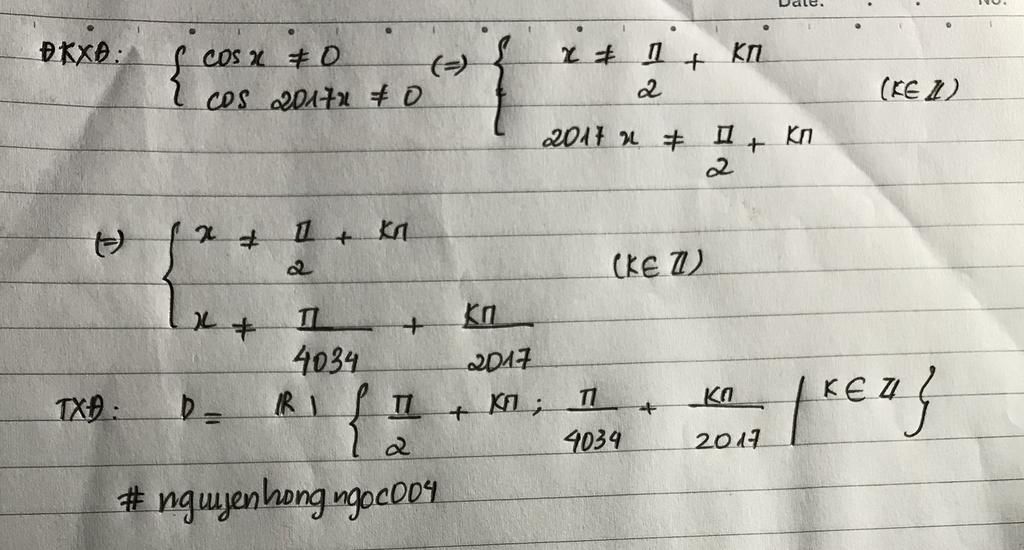 Date: No:
ĐKXĐ: { cos x ≠ 0 (=) { x ≠ π/2 + kπ
cos 2017x ≠ 0 2017x ≠ π/2 + kπ (k∈ℤ)
(=) { x ≠ π/2 + kπ
x ≠ π/4034 + kπ/2017 (k∈ℤ)
TXĐ: D = ℝ \ { π/2 + kπ ; π/4034 + kπ/2017 | k∈ℤ }
# nguyenhongngoc004